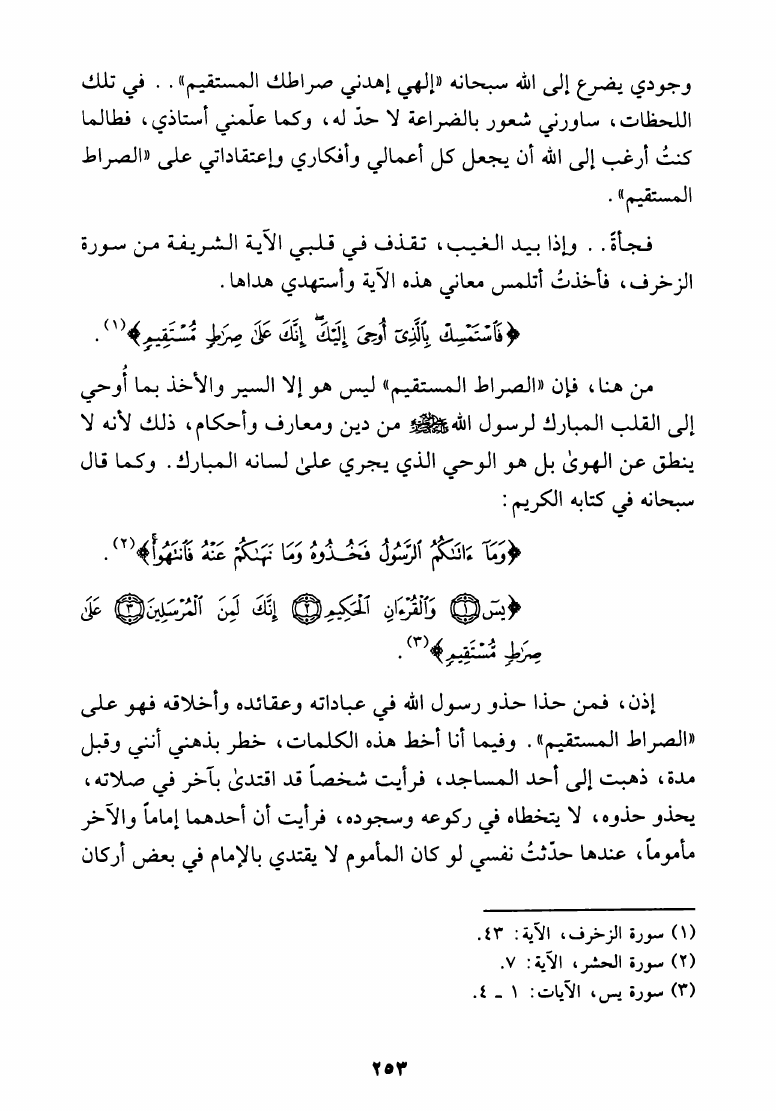 وجودي يضرع إلى الله سبحانه «إلهي إهدني صراطك المستقيم» . . في تلك
اللحظات، ساورني شعور بالضراعة لا حدّ له، وكما علّمني أستاذي، فطالما
كنتُ أرغب إلى الله أن يجعل كل أعمالي وأفكاري وإعتقاداتي على «الصراط
المستقيم».
فجأةً . . وإذا بيد الغيب، تقذف في قلبي الآية الشريفة من سورة
الزخرف، فأخذتُ أتلمس معاني هذه الآية وأستهدي هداها.
﴿فَٱسْتَمْسِكْ بِٱلَّذِىٓ أُوحِىَ إِلَيْكَ ۖ إِنَّكَ عَلَىٰ صِرَٰطٍ مُّسْتَقِيمٍ﴾(١).
من هنا، فإن «الصراط المستقيم» ليس هو إلا السير والأخذ بما أُوحي
إلى القلب المبارك لرسول الله ﷺ من دين ومعارف وأحكام، ذلك لأنه لا
ينطق عن الهوىٰ بل هو الوحي الذي يجري علىٰ لسانه المبارك. وكما قال
سبحانه في كتابه الكريم:
﴿وَمَآ ءَاتَىٰكُمُ ٱلرَّسُولُ فَخُذُوهُ وَمَا نَهَىٰكُمْ عَنْهُ فَٱنتَهُوا۟ۚ﴾(٢).
﴿يسٓ ﴿١﴾ وَٱلْقُرْءَانِ ٱلْحَكِيمِ ﴿٢﴾ إِنَّكَ لَمِنَ ٱلْمُرْسَلِينَ ﴿٣﴾ عَلَىٰ
صِرَٰطٍ مُّسْتَقِيمٍ﴾(٣).
إذن، فمن حذا حذو رسول الله في عباداته وعقائده وأخلاقه فهو على
«الصراط المستقيم». وفيما أنا أخط هذه الكلمات، خطر بذهني أنني وقبل
مدة، ذهبت إلى أحد المساجد، فرأيت شخصاً قد اقتدىٰ بآخر في صلاته،
يحذو حذوه، لا يتخطاه في ركوعه وسجوده، فرأيت أن أحدهما إماماً والآخر
مأموماً، عندها حدّثتُ نفسي لو كان المأموم لا يقتدي بالإمام في بعض أركان
(١) سورة الزخرف، الآية: ٤٣.
(٢) سورة الحشر، الآية: ٧.
(٣) سورة يس، الآيات: ١ ـ ٤.
٢٥٣